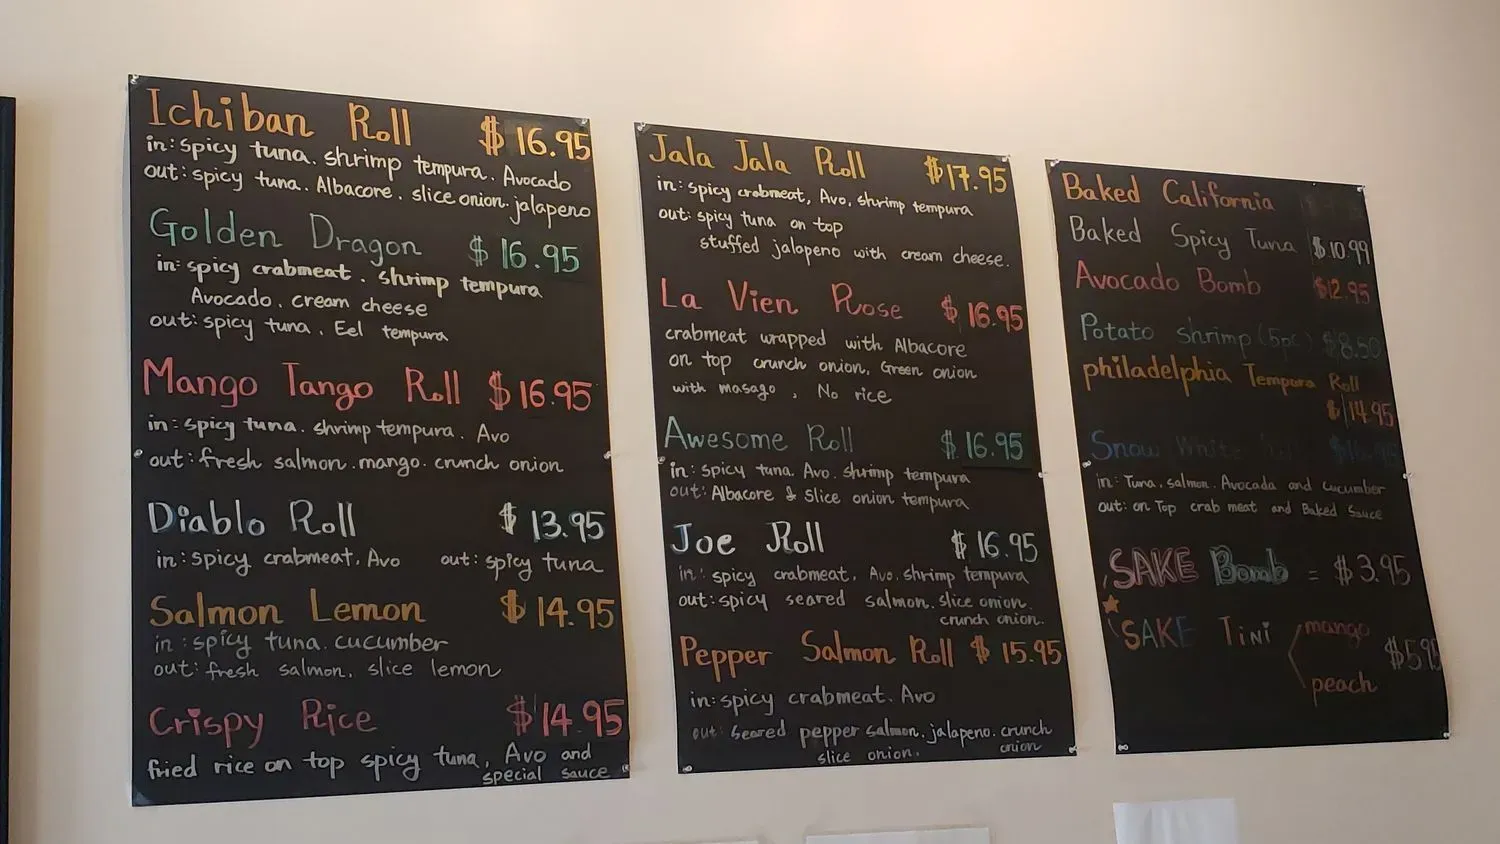 Ichiban Roll $16.95
in: spicy tuna. shrimp tempura. Avocado
out: spicy tuna. Albacore. slice onion. jalapeno
Golden Dragon $16.95
in: spicy crabmeat. shrimp tempura
Avocado. cream cheese
out: spicy tuna. Eel tempura
Mango Tango Roll $16.95
in: spicy tuna. shrimp tempura. Avo
out: fresh salmon. mango. crunch onion
Diablo Roll $13.95
in: spicy crabmeat. Avo out: spicy tuna
Salmon Lemon $14.95
in: spicy tuna. cucumber
out: fresh salmon, slice lemon
Crispy Rice $14.95
fried rice on top spicy tuna, Avo and
special sauce
Jala Jala Roll $17.95
in: spicy crabmeat, Avo, shrimp tempura
out: spicy tuna on top
stuffed jalopeno with cream cheese.
La Vien Rose $16.95
crabmeat wrapped with Albacore
on top crunch onion, Green onion
with masago, No rice
Awesome Roll $16.95
in: spicy tuna. Avo. shrimp tempura
out: Albacore & slice onion tempura
Joe Roll $16.95
in: spicy crabmeat, Avo. shrimp tempura
out: spicy seared salmon. slice onion.
crunch onion.
Pepper Salmon Roll $15.95
in: spicy crabmeat. Avo
out: Seared pepper salmon. jalapeno. crunch
onion
slice onion.
Baked California
Baked Spicy Tuna $10.99
Avocado Bomb $12.95
Potato shrimp (5pc) $8.50
philadelphia Tempura Roll
$14.95
Snow White
in: Tuna, salmon, Avocada and cucumber
out: on Top crab meat and Baked Sauce
SAKE Bomb = $3.95
SAKE TiNi mango
peach
$5.95